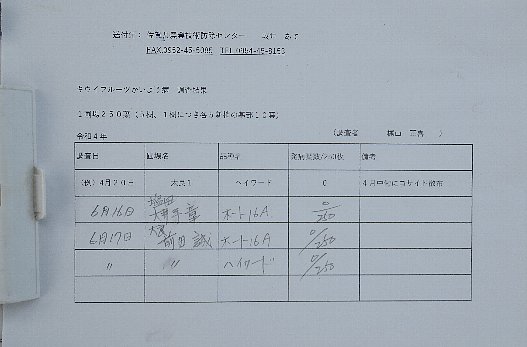 送付先： 佐賀県農業技術防除センター
FAX.0952-45-5085 TEL.0954-45-8153
キウイフルーツかいよう病 調査結果
1圃場250葉（5樹、1樹につき各5新梢の基部10葉）
令和4年 （調査者 横山 ）
調査日 圃場名 品種名 発病葉数/250枚 備考
（例）4月20日 太良1 ヘイワード 0 4月中旬にコサイド散布
6月16日 塩田 ホート16A 0/250
6月17日 前田 誠 ホート16A 0/250
〃 〃 ヘイワード 0/250